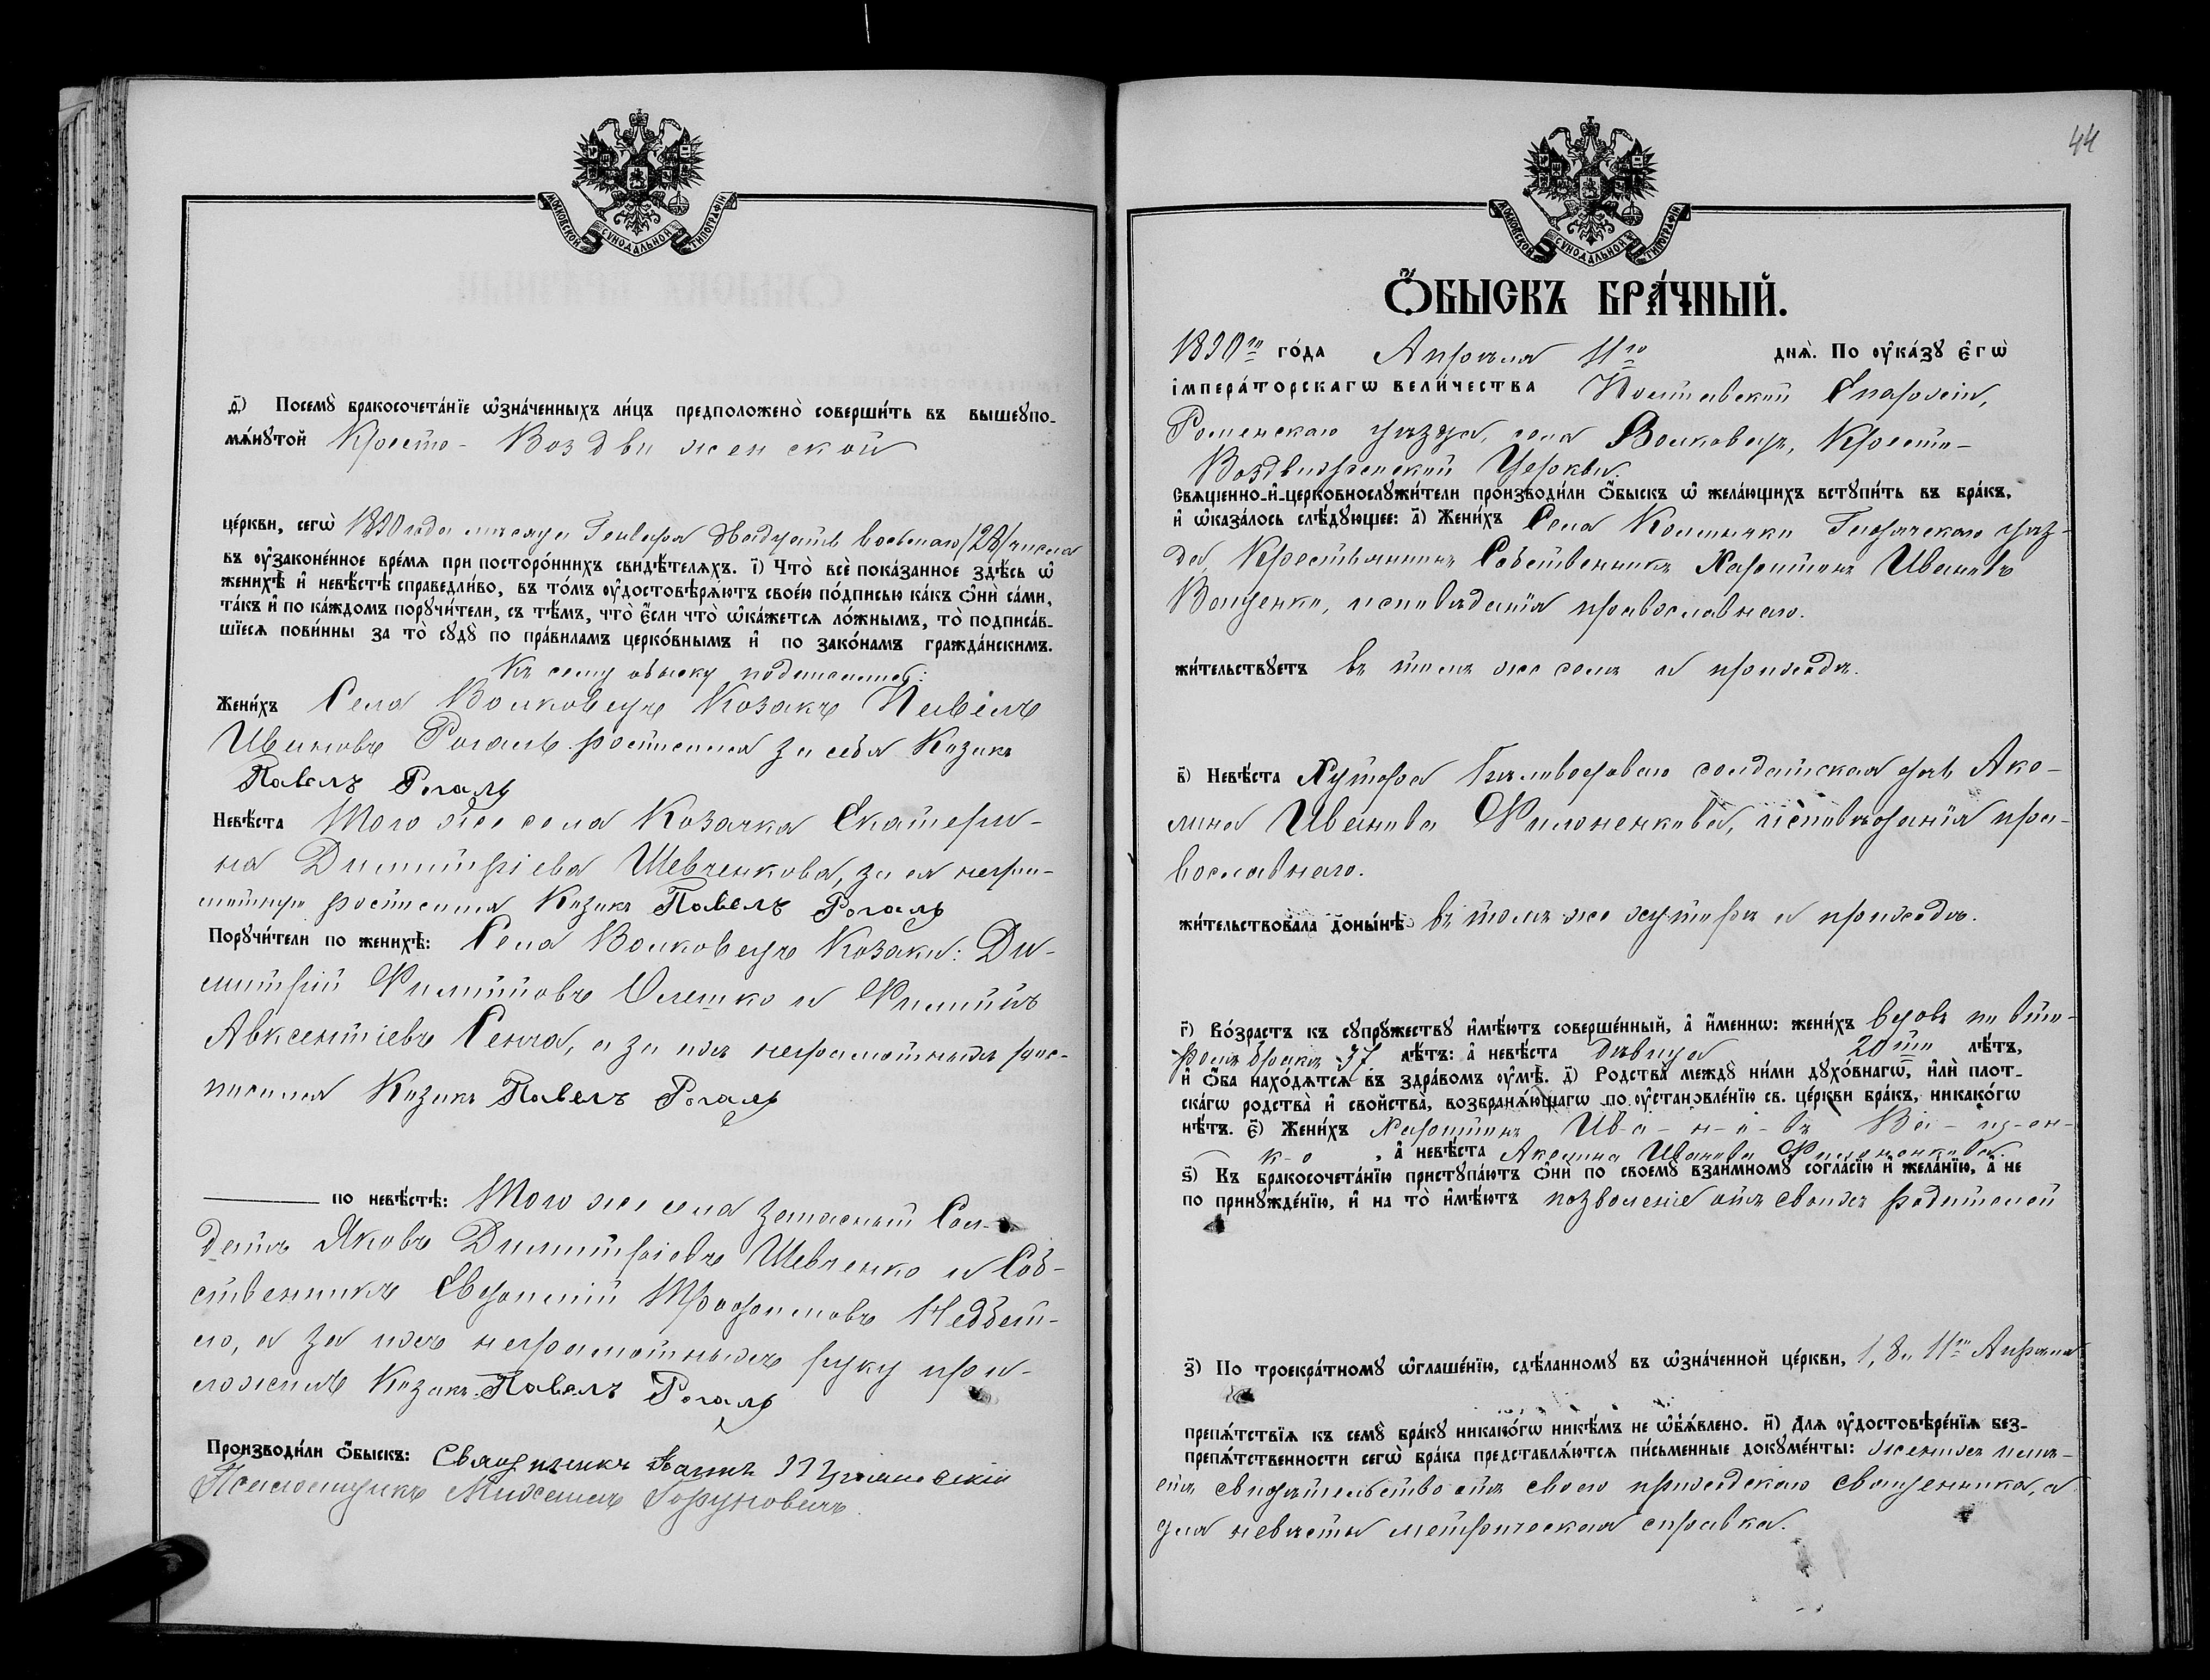 МОСКОВСКОЙ СУНОДАЛЬНОЙ ТИПОГРАФІИ
д҃і) Посемꙋ̀ бракосочета́нїе ѡ҆зна́ченныхъ ли́цъ предположено̀ соверши́ть въ вышеꙋпо-
мѧ́нꙋтой Кресто-Воздвиженской
це́ркви, сегѡ̀ 1890 года мѣсяца Генваря двадцать восьмаго /28/ числа
въ ᲂу҆зако́не́нное вре́мѧ при посторо́ннихъ свидѣ́телѧхъ. і҃) Что̀ всѐ пока́занное здѣ́сь ѡ҆
женихѣ̀ и҆ невѣ́стѣ справедли́во, въ то́мъ ᲂу҆достовѣрѧ́ютъ свое́ю по́дписью ка́къ ѻ҆нѝ са́ми,
та́къ и҆ по ка́ждомъ порꙋчи́тели, съ тѣ́мъ, что̀ є҆́сли что̀ ѡ҆ка́жетсѧ ло́жнымъ, то̀ подписа́в-
шїесѧ пови́нны за то̀ сꙋдꙋ̀ по пра́виламъ церко́внымъ и҆ по зако́намъ гражда́нскимъ.
Къ сему обыску подписались:
Жени́хъ Села Волковецъ Козакъ Павелъ
Ивановъ Рогаль росписался за себя Козакъ
Павелъ Рогаль
Невѣ́ста Того же села Козачка Екатери-
на Димитріева Шевченкова, за ея негра-
мотную росписался Козакъ Павелъ Рогаль
Порꙋчи́тели по женихѣ̀: Села Волковецъ Козаки: Ди-
митрій Филипповъ Олешко и Филиппъ
Авксентіевъ Сенча, а за ихъ неграмотныхъ рос-
писался Козакъ Павелъ Рогаль
по невѣ́стѣ: Того же села запасный Сол-
датъ Яковъ Димитріевъ Шевченко и Соб-
ственникъ Евдокимъ Трофимовъ
а за ихъ неграмотныхъ руку при-
ложилъ Козакъ Павелъ Рогаль
Производи́ли ѻ҆́быскъ: Священникъ
Псаломщикъ Михаилъ
44
МОСКОВСКОЙ СУНОДАЛЬНОЙ ТИПОГРАФІИ
Ѻ҆́БЫСКЪ БРА́ЧНЫЙ.
1890го го́да Апрѣля 11го днѧ̀. По ᲂу҆ка́зꙋ є҆гѡ̀
і҆мпера́торскагѡ вели́чества Полтавской Епархіи,
Роменскаго уѣзда, села Волковецъ, Кресто-
Воздвиженской Церкви.
Свѧще́нно-и҆-церковнослꙋжи́тели производи́ли ѻ҆́быскъ ѡ҆ жела́ющихъ встꙋпи́ть въ бра́къ,
и҆ ѡ҆каза́лось слѣ́дꙋющее: а҃) Жени́хъ Села Гадячскаго уѣз-
да, Крестьянинъ Собственникъ Харитонъ Ивановъ
Ващенко, исповѣданія православнаго.
жи́тельствꙋетъ въ томъ же селѣ и приходѣ.
в҃) Невѣ́ста Хутора солдатская дочь Аки-
лина Иванова Филоненкова, исповѣданія пра-
вославнаго.
жи́тельствовала доны́нѣ въ томъ же хуторѣ и приходѣ.
г҃) Во́зрастъ къ сꙋпрꙋ́жествꙋ и҆мѣ́ютъ соверше́нный, а҆ и҆́менно: жени́хъ вдовъ по вто-
ромъ бракѣ 37 лѣ́тъ: а҆ невѣ́ста дѣвица 20ти лѣ́тъ,
и҆ ѻ҆́ба нахо́дѧтсѧ въ здра́вомъ ᲂу҆мѣ̀. д҃) Родства̀ междꙋ̀ ни́ми дꙋхо́внагѡ, и҆лѝ плот-
ска́гѡ родства̀ и҆ сво́йства̀, возбранѧ́ющагѡ по ᲂу҆становле́нїю св. це́ркви бра́къ, никако́гѡ
нѣ́тъ. є҃) Жени́хъ Харитонъ Ив-а-н-о-въ Ва-щ-ен-
к-о, а҆ невѣ́ста Акилина Иванова Филоненкова.
ѕ҃) Къ бракосочета́нїю пристꙋпа́ютъ ѻ҆нѝ по своемꙋ̀ взаи́мномꙋ согла́сїю и҆ жела́нїю, а҆ не
по принꙋжде́нїю, и҆ на то̀ и҆мѣ́ютъ позволеніе отъ своихъ родителей
з҃) По троекра́тномꙋ ѡ҆глаше́нїю, сдѣ́ланномꙋ въ ѡ҆зна́ченной це́ркви, 1, 8 и 11го Апрѣля
препѧ́тствїѧ къ семꙋ̀ бра́кꙋ никако́гѡ никѣ́мъ не ѡ҆б̾ѧ́влено. и҃) Длѧ ᲂу҆достовѣре́нїѧ без-
препѧ́тственности сегѡ̀ бра́ка представлѧ́ютсѧ пи́сьменные докꙋме́нты: женихъ имѣ-
етъ свидѣтельство отъ своего приходскаго священника, а
для невѣсты метрическая справка.